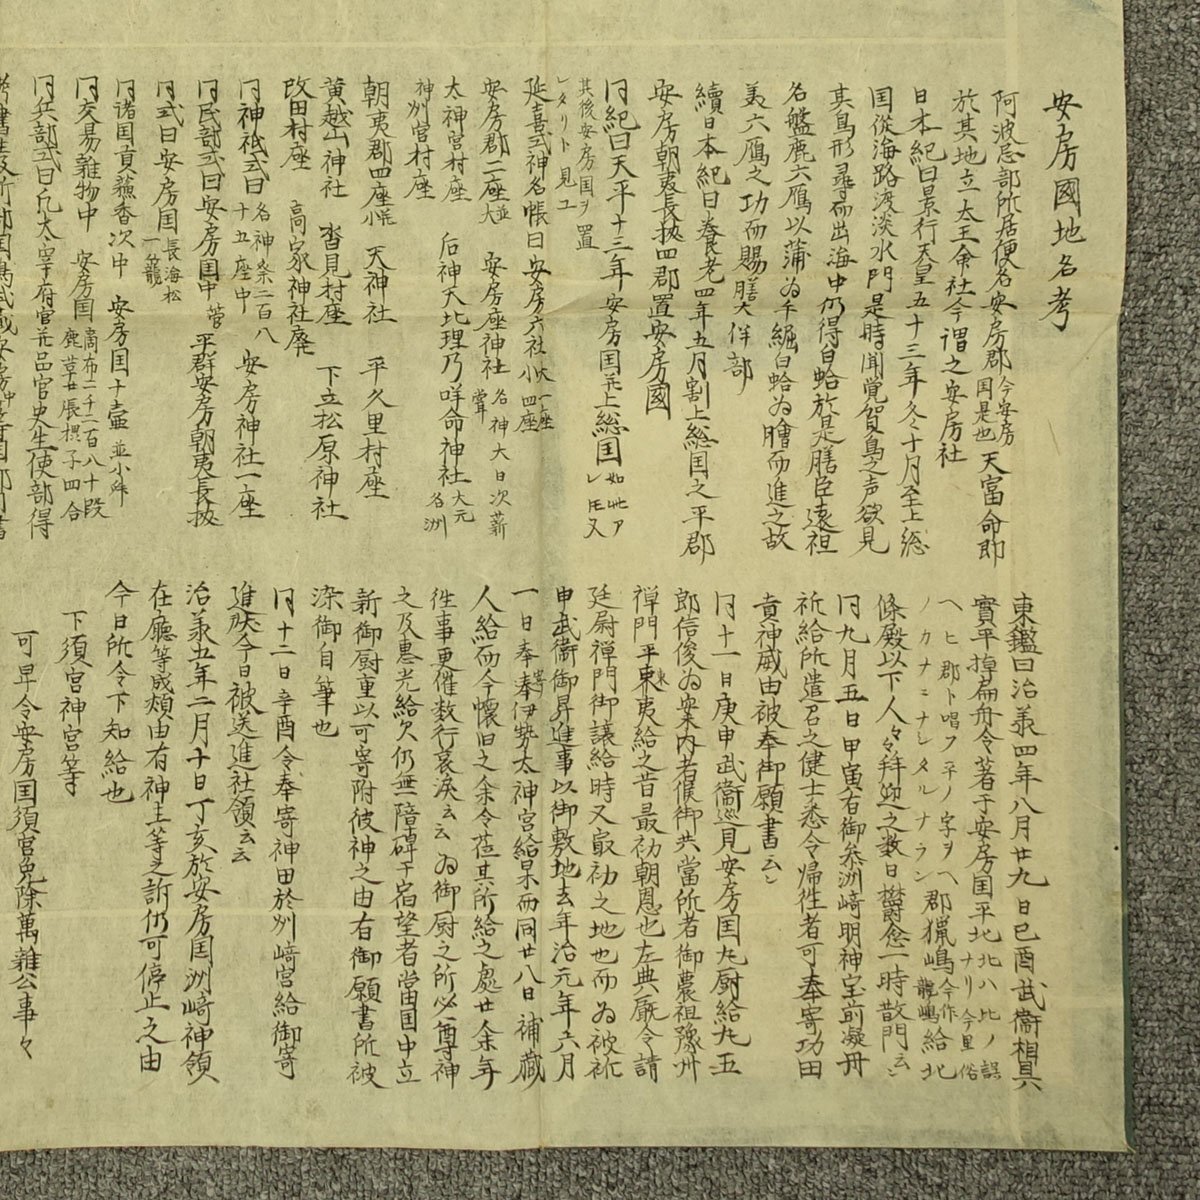 安房國地名考
阿波忌部所居便名安房郡今安房国是也天富命即
於其地立太玉命社今謂之安房社
日本紀曰景行天皇五十三年冬十月至上総
国従海路渡淡水門是時聞覚賀鳥之声欲見
其鳥形尋而出海中仍得白蛤於是膳臣遠祖
名盤鹿六雁以蒲為手繦白蛤為膾而進之故
美六鴈之功而賜膳大伴部
續日本紀曰養老四年五月割上総国之平郡
安房朝夷長狭四郡置安房國
同紀曰天平十三年安房国并上総国如此アレ𪜈又
其後安房国ヲ置レタリト見ユ
延喜式神名帳曰安房六社大二座小四座
安房郡二座並大 安房座神社名神大月次新甞
大神宮村座 后神天比理乃咩命神社大元名洲
神洲宮村座
朝夷郡四座並小 天神社 平久里村座
莫越山神社 沓見村座 下立松原神社
改田村座 高家神社廃
同神祇式曰名神祭二百八十五座中 安房神社一座
同民部式曰安房国中管 平群安房朝夷長狭
同式曰安房国長鮑海松一籠
同諸国貢蘇香次中 安房国十壷並小
同交易雑物中 安房国商布二千二百八十段鹿革廿張摂子四合
同兵部式曰凡太宰府官并品官史生使部得
東鑑曰治羕四年八月廿九日己酉武衞相具
實平掉扁舟令著于安房国平北北ハ比ノ誤ナリ今里俗
ヘヒ郡ト唱フ平ノ字ヲヘノカナニナシタルナラン郡猟嶋今作龍嶋給北
條殿以下人々拜迎之数日欝念一時散門云〻
同九月五日甲寅有御参洲﨑明神宝前凝丹
祈給所遣召之健士悉令帰往者可奉寄功田
賁神威由被奉御願書云〻
同十一日庚申武衞巡見安房国丸厨給丸五
郎信俊為案内者候御共當所者御嚢祖豫州
禅門平東夷給之昔最初朝恩也左典厩令請
廷尉禅門御譲給時又最初之地也而為被祈
申武衞御昇進事以御敷地去年治元年六月
一日奉寄伊勢太神宮給果而同廿八日補蔵
人給而今懐旧之余令莅其所給之處廿余年
徃事更催数行哀涙云云為御厨之所必尊神
之及惠光給欠仍無一障碍于宿望者當国中立
新御厨重以可寄附彼神之由有御願書所被
染御自筆也
同十二日辛酉令奉寄神田於州﨑宮給御寄
進状今日被送進社領云云
治羕五年二月十日丁亥於安房国洲﨑神領
在廳等成煩由有神主等之訴仍可停止之由
今日所令下知給也
下須宮神宮等
可早令安房国須宮免除萬雜公事々